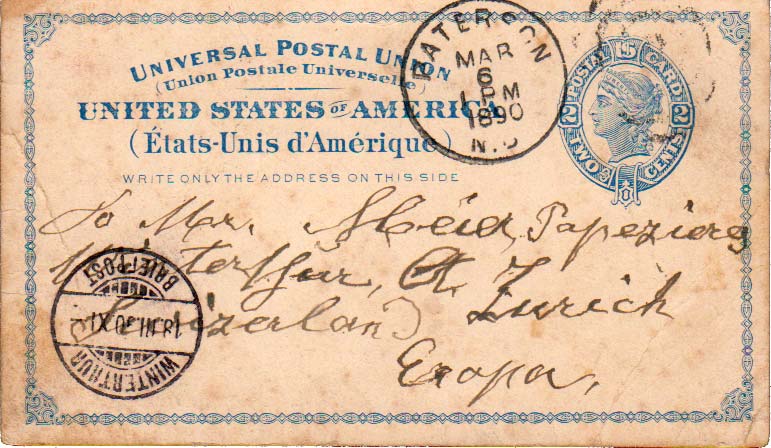 UNIVERSAL POSTAL UNION
(Union Postale Universelle)
UNITED STATES OF AMERICA
(États-Unis d'Amérique)
WRITE ONLY THE ADDRESS ON THIS SIDE
PATERSON
MAR
6
1 PM
1890
N.J
U.S. POSTAL CARD
2 TWO CENTS 2
To Mr. Tapezierg
Winterthur, Ct. Zurich
Switzerland
Eropa,
WINTERTHUR
BRIEFPOST
18.III.90.XI